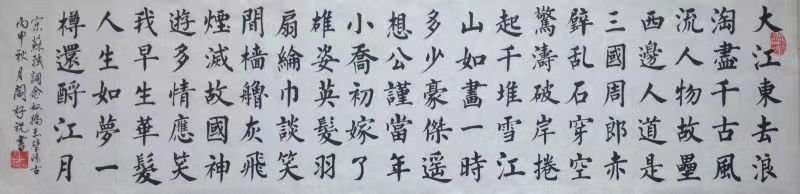 大江東去浪
淘盡千古風
流人物故壘
西邊人道是
三國周郎赤
壁乱石穿空
驚濤破岸捲
起千堆雪江
山如畫一時
多少豪傑遥
想公謹當年
小喬初嫁了
雄姿英髮羽
扇綸巾談笑
間檣艪灰飛
煙滅故國神
遊多情應笑
我早生華髮
人生如夢一
樽還酹江月
宋蘇軾詞念奴嬌赤壁懷古
丙申秋月閻好書